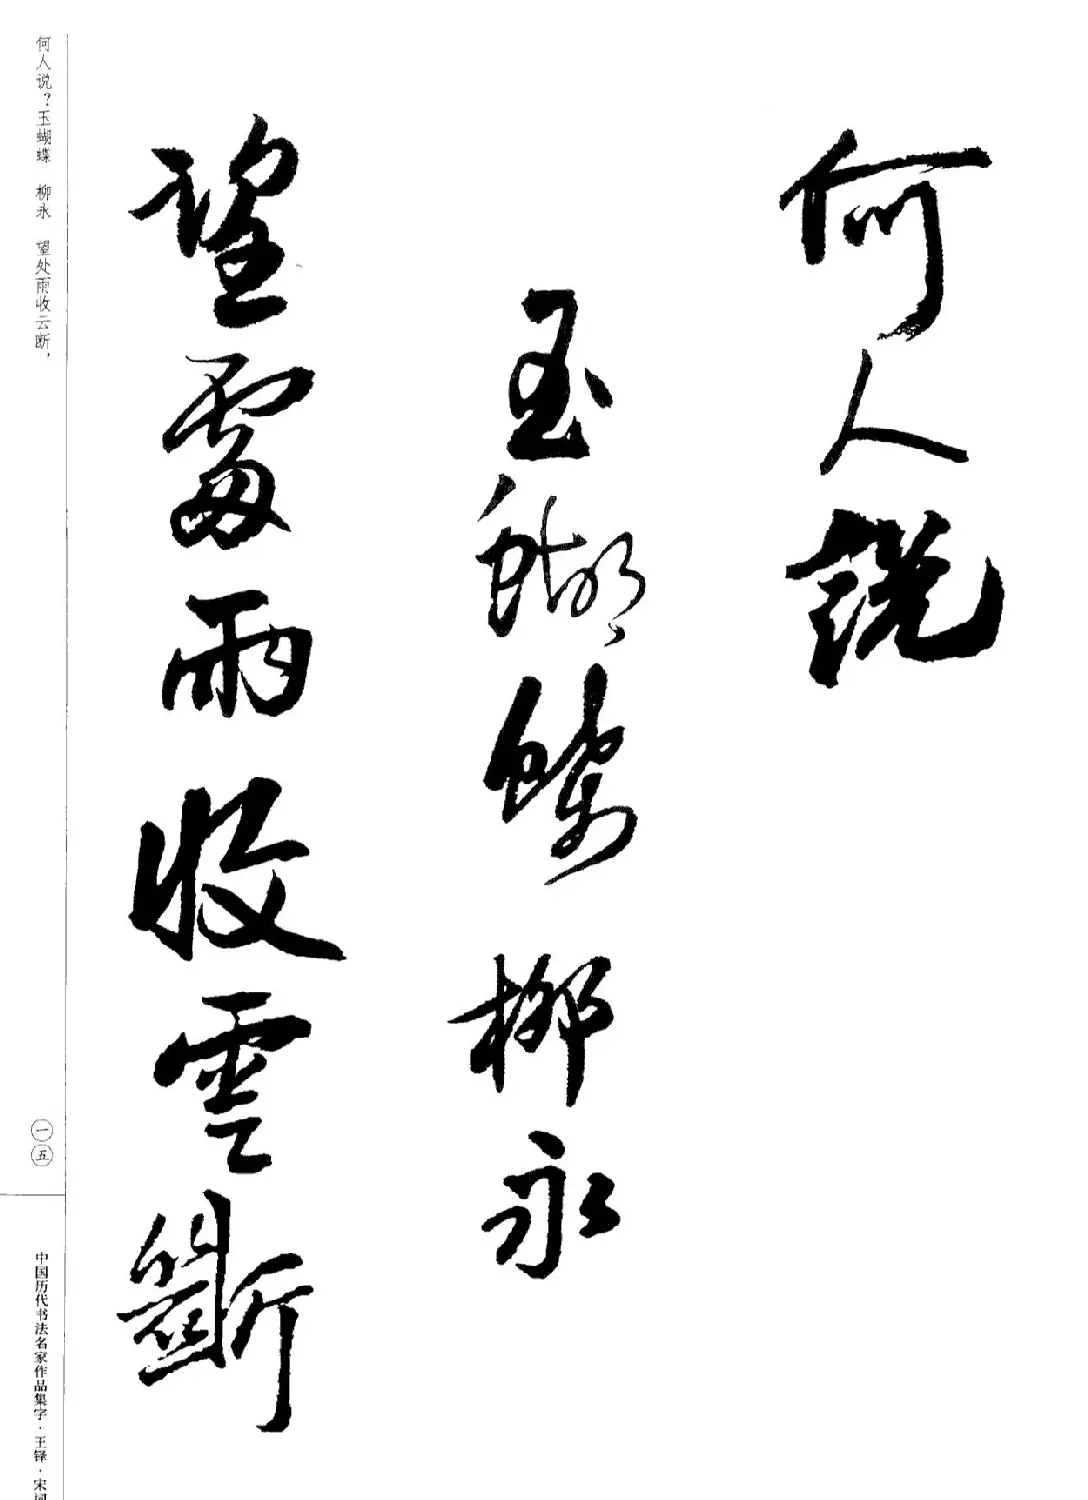 何人説
玉蝴蝶 柳永
望處雨收雲斷
何人说？玉蝴蝶 柳永 望处雨收云断，
一五
中国历代书法名家作品集字·王铎·宋词